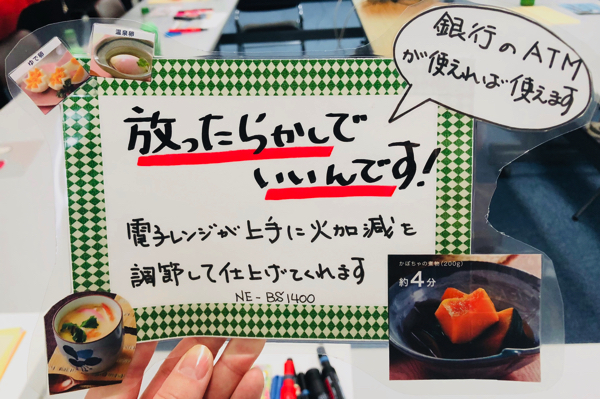 ゆで卵
温泉卵
銀行のATM
が使えれば使えます
放ったらかしで
いいんです!
電子レンジが上手に火加減を
調節して仕上げてくれます
NE-BS1400
かぼちゃの煮物(200g)
約4分